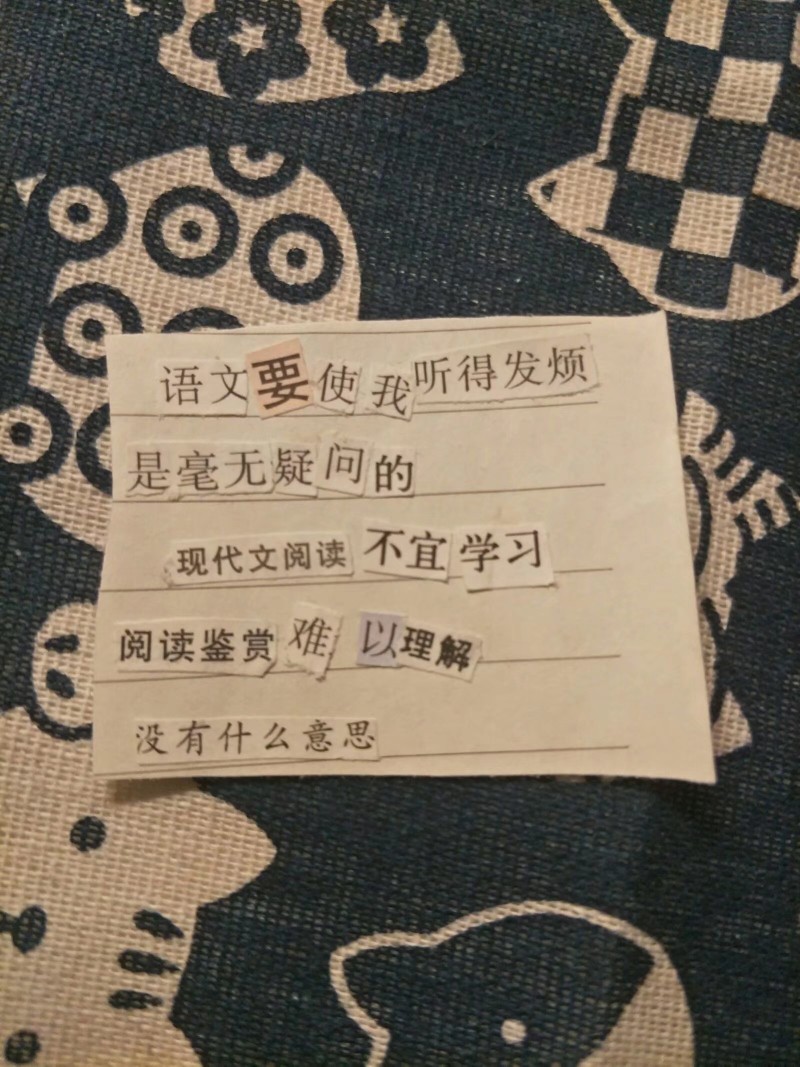 语文要使我听得发烦
是毫无疑问的
现代文阅读不宜学习
阅读鉴赏难以理解
没有什么意思